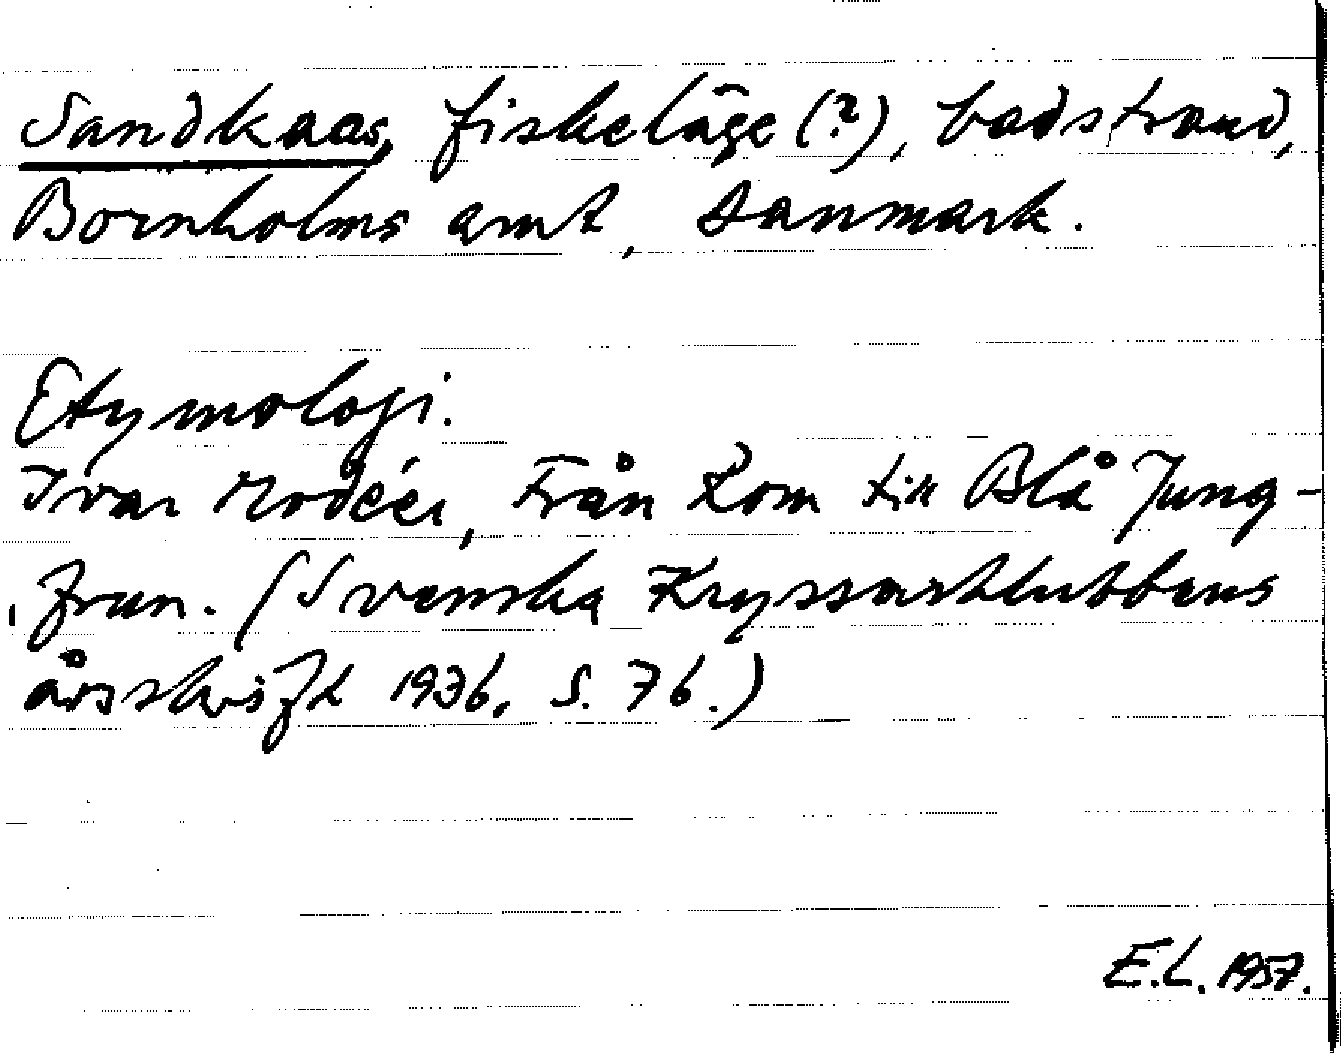 Sandkaas, fiskeläge (?), badstrand,
Bornholms amt, Danmark.
Etymologi.
Ivar Modéer, Från Rom till Blå Jung-
frun. (Svenska Kryssarklubbens
årsskrift 1936, S. 76.)
E.L. 1957.